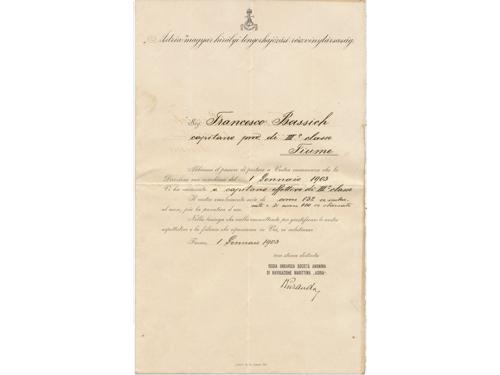 "Adria" magyar királyi tengerhajózási részvénytársaság.
Sig. Francesco Bassich
capitano prov. di IIIª classe
Fiume
Abbiamo il piacere di portare a Vostra conoscenza che la
Direzione con decisione del 1 Gennaio 1903
Vi ha nominato a capitano effettivo di IIIª classe
Il vostro emolumento sarà di cor. 132 in contanti
al mese, più la panatica d'uso.
Nella lusinga che vorrete giustificare le nostre
aspettative e la fiducia che riponiamo in Voi, vi salutiamo
Fiume, 1 Gennaio 1903
con stima distinta
REGIA UNGARICA SOCIETÀ ANONIMA
DI NAVIGAZIONE MARITTIMA „ADRIA"